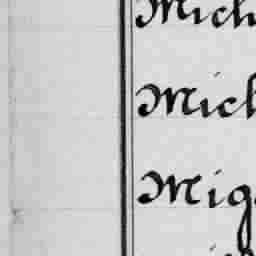 Mich
Mich
Mig